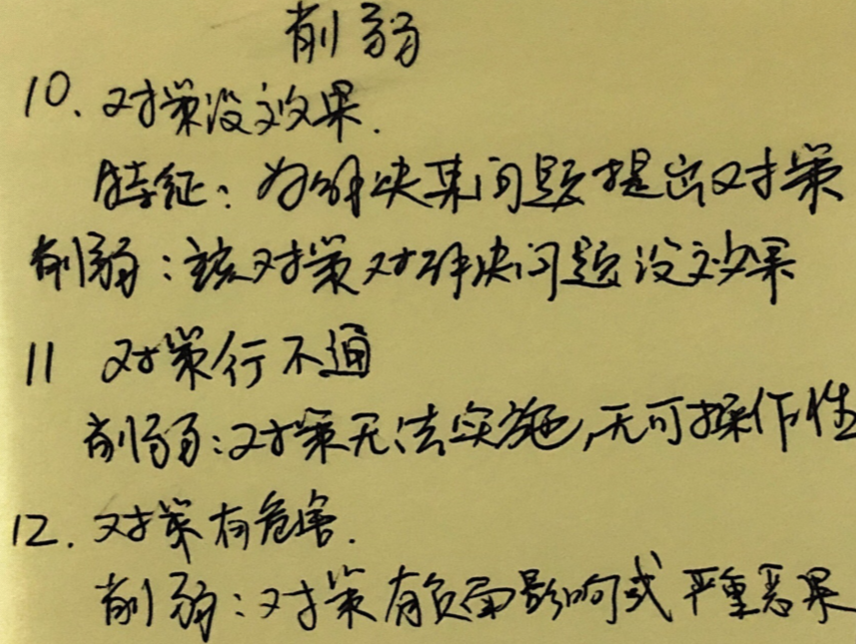 削弱
10. 对策没效果.
特征：为解决某问题提出对策
削弱：该对策对解决问题没效果
11 对策行不通
削弱：对策无法实施，无可操作性
12. 对策有危害.
削弱：对策有负面影响或严重恶果